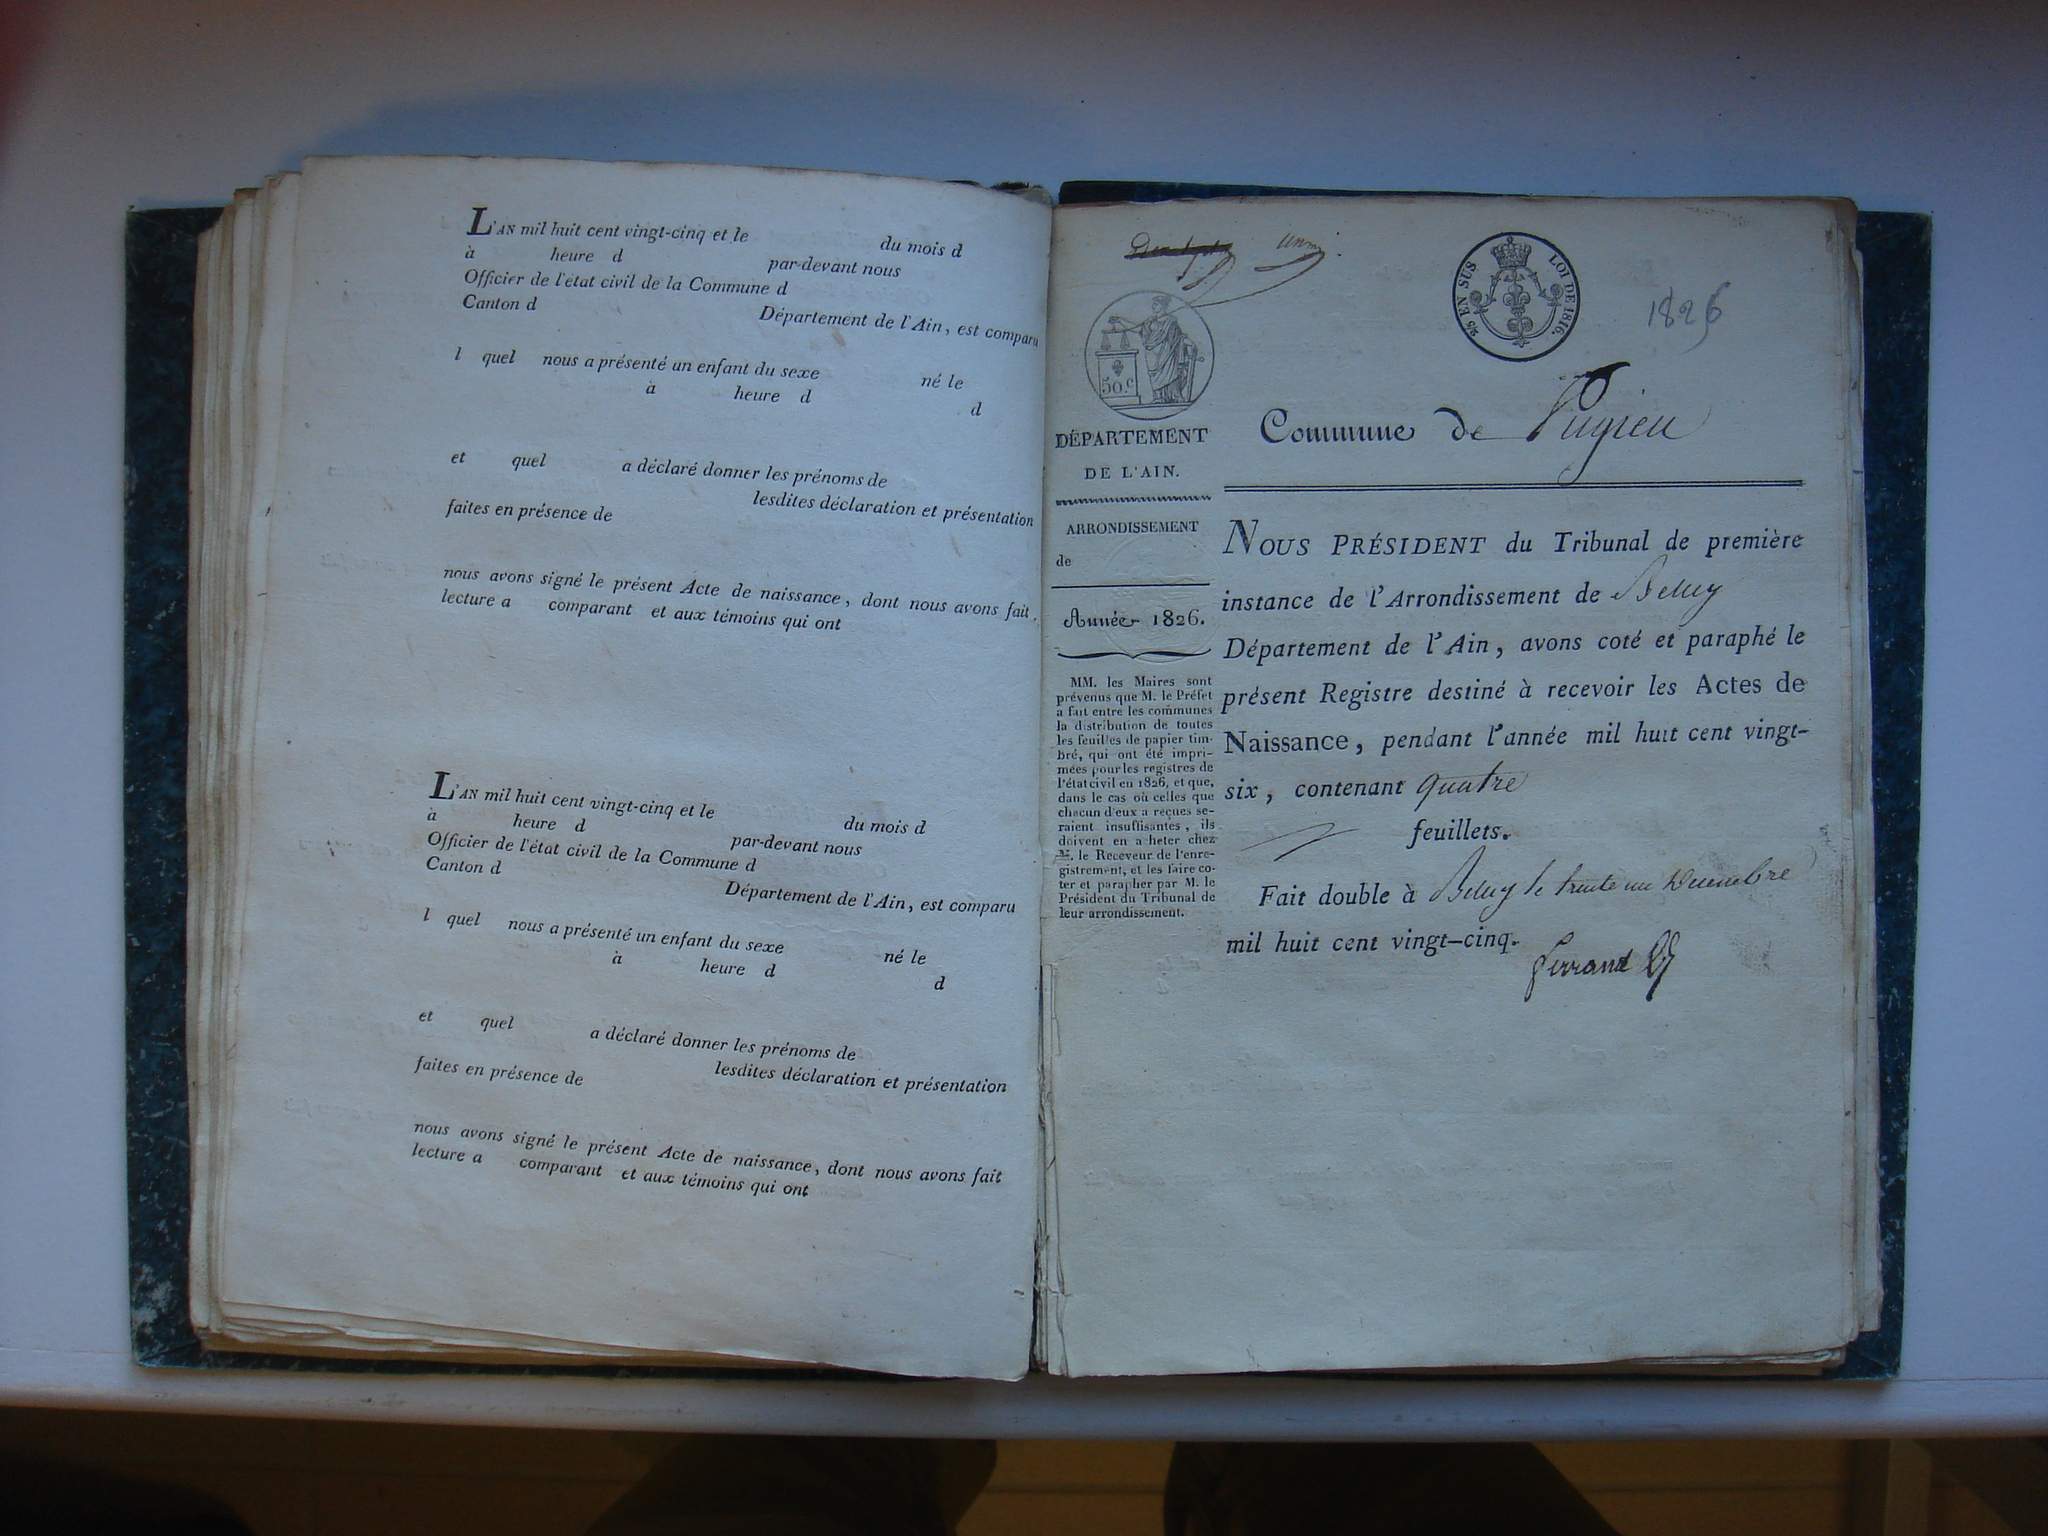 L'AN mil huit cent vingt-cinq et le du mois d
à heure d par-devant nous
Officier de l'état civil de la Commune d
Canton d Département de l'Ain, est comparu
l quel nous a présenté un enfant du sexe né le
à heure d d
et quel a déclaré donner les prénoms de
lesdites déclaration et présentation
faites en présence de
nous avons signé le présent Acte de naissance, dont nous avons fait
lecture a comparant et aux témoins qui ont
L'AN mil huit cent vingt-cinq et le du mois d
à heure d par-devant nous
Officier de l'état civil de la Commune d
Canton d Département de l'Ain, est comparu
l quel nous a présenté un enfant du sexe né le
à heure d d
et quel a déclaré donner les prénoms de
lesdites déclaration et présentation
faites en présence de
nous avons signé le présent Acte de naissance, dont nous avons fait
lecture a comparant et aux témoins qui ont
25 EN SUS LOI DE 1816.
1826
50.c
DÉPARTEMENT
DE L'AIN.
ARRONDISSEMENT
de
Année 1826.
MM. les Maires sont
prévenus que M. le Préfet
a fait entre les communes
la distribution de toutes
les feuilles de papier tim-
bré, qui ont été impri-
mées pour les registres de
l'état civil en 1826, et que,
dans le cas où celles que
chacun d'eux a reçues se-
raient insuffisantes, ils
doivent en a heter chez
M. le Receveur de l'enre-
gistrement, et les faire co-
ter et parapher par M. le
Président du Tribunal de
leur arrondissement.
Commune de Pugieu
NOUS PRÉSIDENT du Tribunal de première
instance de l'Arrondissement de Belley
Département de l'Ain, avons coté et paraphé le
présent Registre destiné à recevoir les Actes de
Naissance, pendant l'année mil huit cent vingt-
six, contenant quatre
feuillets.
Fait double à Belley le trente un Decembre
mil huit cent vingt-cinq.
Ferrand